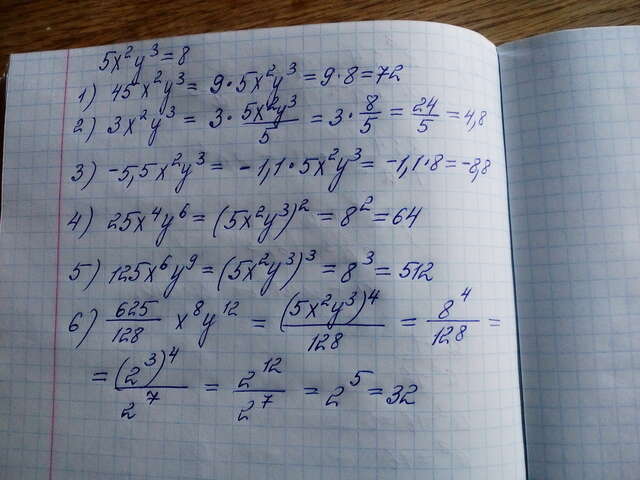 5x²y³=8
1) 45x²y³ = 9·5x²y³ = 9·8=72
2) 3x²y³ = 3·5x²y³/5 = 3·8/5 = 24/5 = 4,8
3) -5,5x²y³ = -1,1·5x²y³ = -1,1·8=-8,8
4) 25x⁴y⁶=(5x²y³)²=8²=64
5) 125x⁶y⁹=(5x²y³)³=8³=512
6) 625/128 x⁸y¹² = (5x²y³)⁴/128 = 8⁴/128 =
= (2³)⁴/2⁷ = 2¹²/2⁷ = 2⁵=32